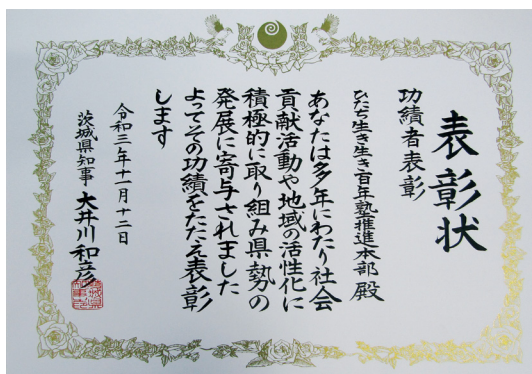 表彰状
功績者表彰
ひたち生き生き百年塾推進本部 殿
あなたは多年にわたり社会
貢献活動や地域の活性化に
積極的に取り組み県勢の
発展に寄与されました
よってその功績をたたえ表彰
します
令和三年十一月十二日
茨城県知事 大井川和彦